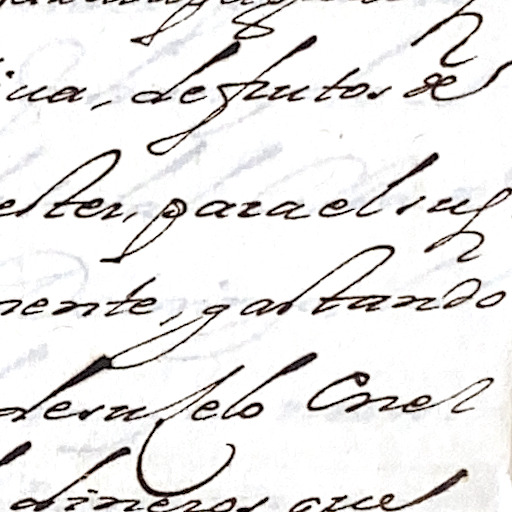 iua, de frutos de
ester, para el sus
mente, gastando
desuelo en el
dineros que